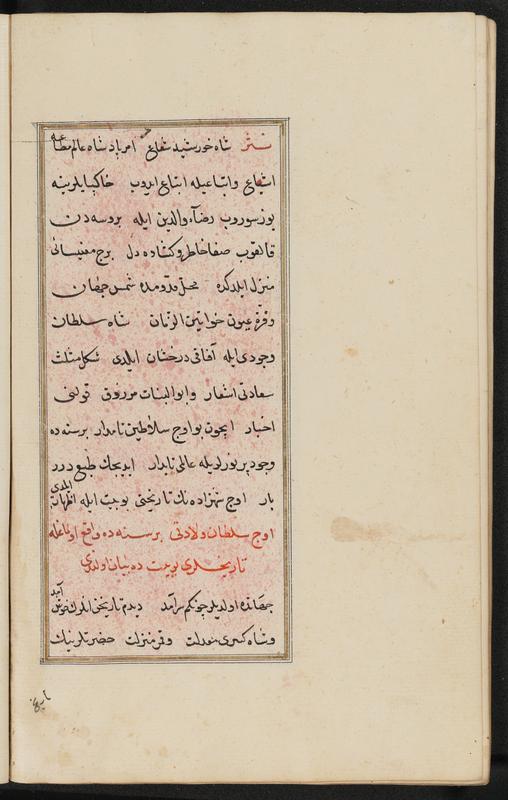 نثر شاه خورشید شعاع امر پادشاه عالم مطاعه
اشیاع و اتباعیله اتباع ایدوب خاکپایلرینه
یوز سوروب رضاء والدین ایله بروسه دن
قالقوب صفا خاطر و کشاده دل برج مغنیسایی
منزل ایلدکده محل قدومده شمس جهان
و قرۀ عیون خواتین الزمان شاه سلطان
وجودی ایله آفاقی درخشان ایلدی شکل مثلث
سعادتی اشعار و ابو البنات مرزوق قولنی
اخبار ایچون بو اوچ سلاطین نامدار بر سنه ده
وجود پر نورلریله عالمی تابدار ایدیجك طبع درر
بار اوچ شهزاده نك تاریخنی بو بیت ایله اظهار ایلدی
اوچ سلطان ولادتی بر سنه ده واقع اولماغله
تاریخلری بو بیت ده بیان اولندی
جهانده اولدیلر چونکم سرآمد دیدم تاریخن انلرك خوش آمد
و شاه کسری معدلت و قمر منزلت حضرتلرینك